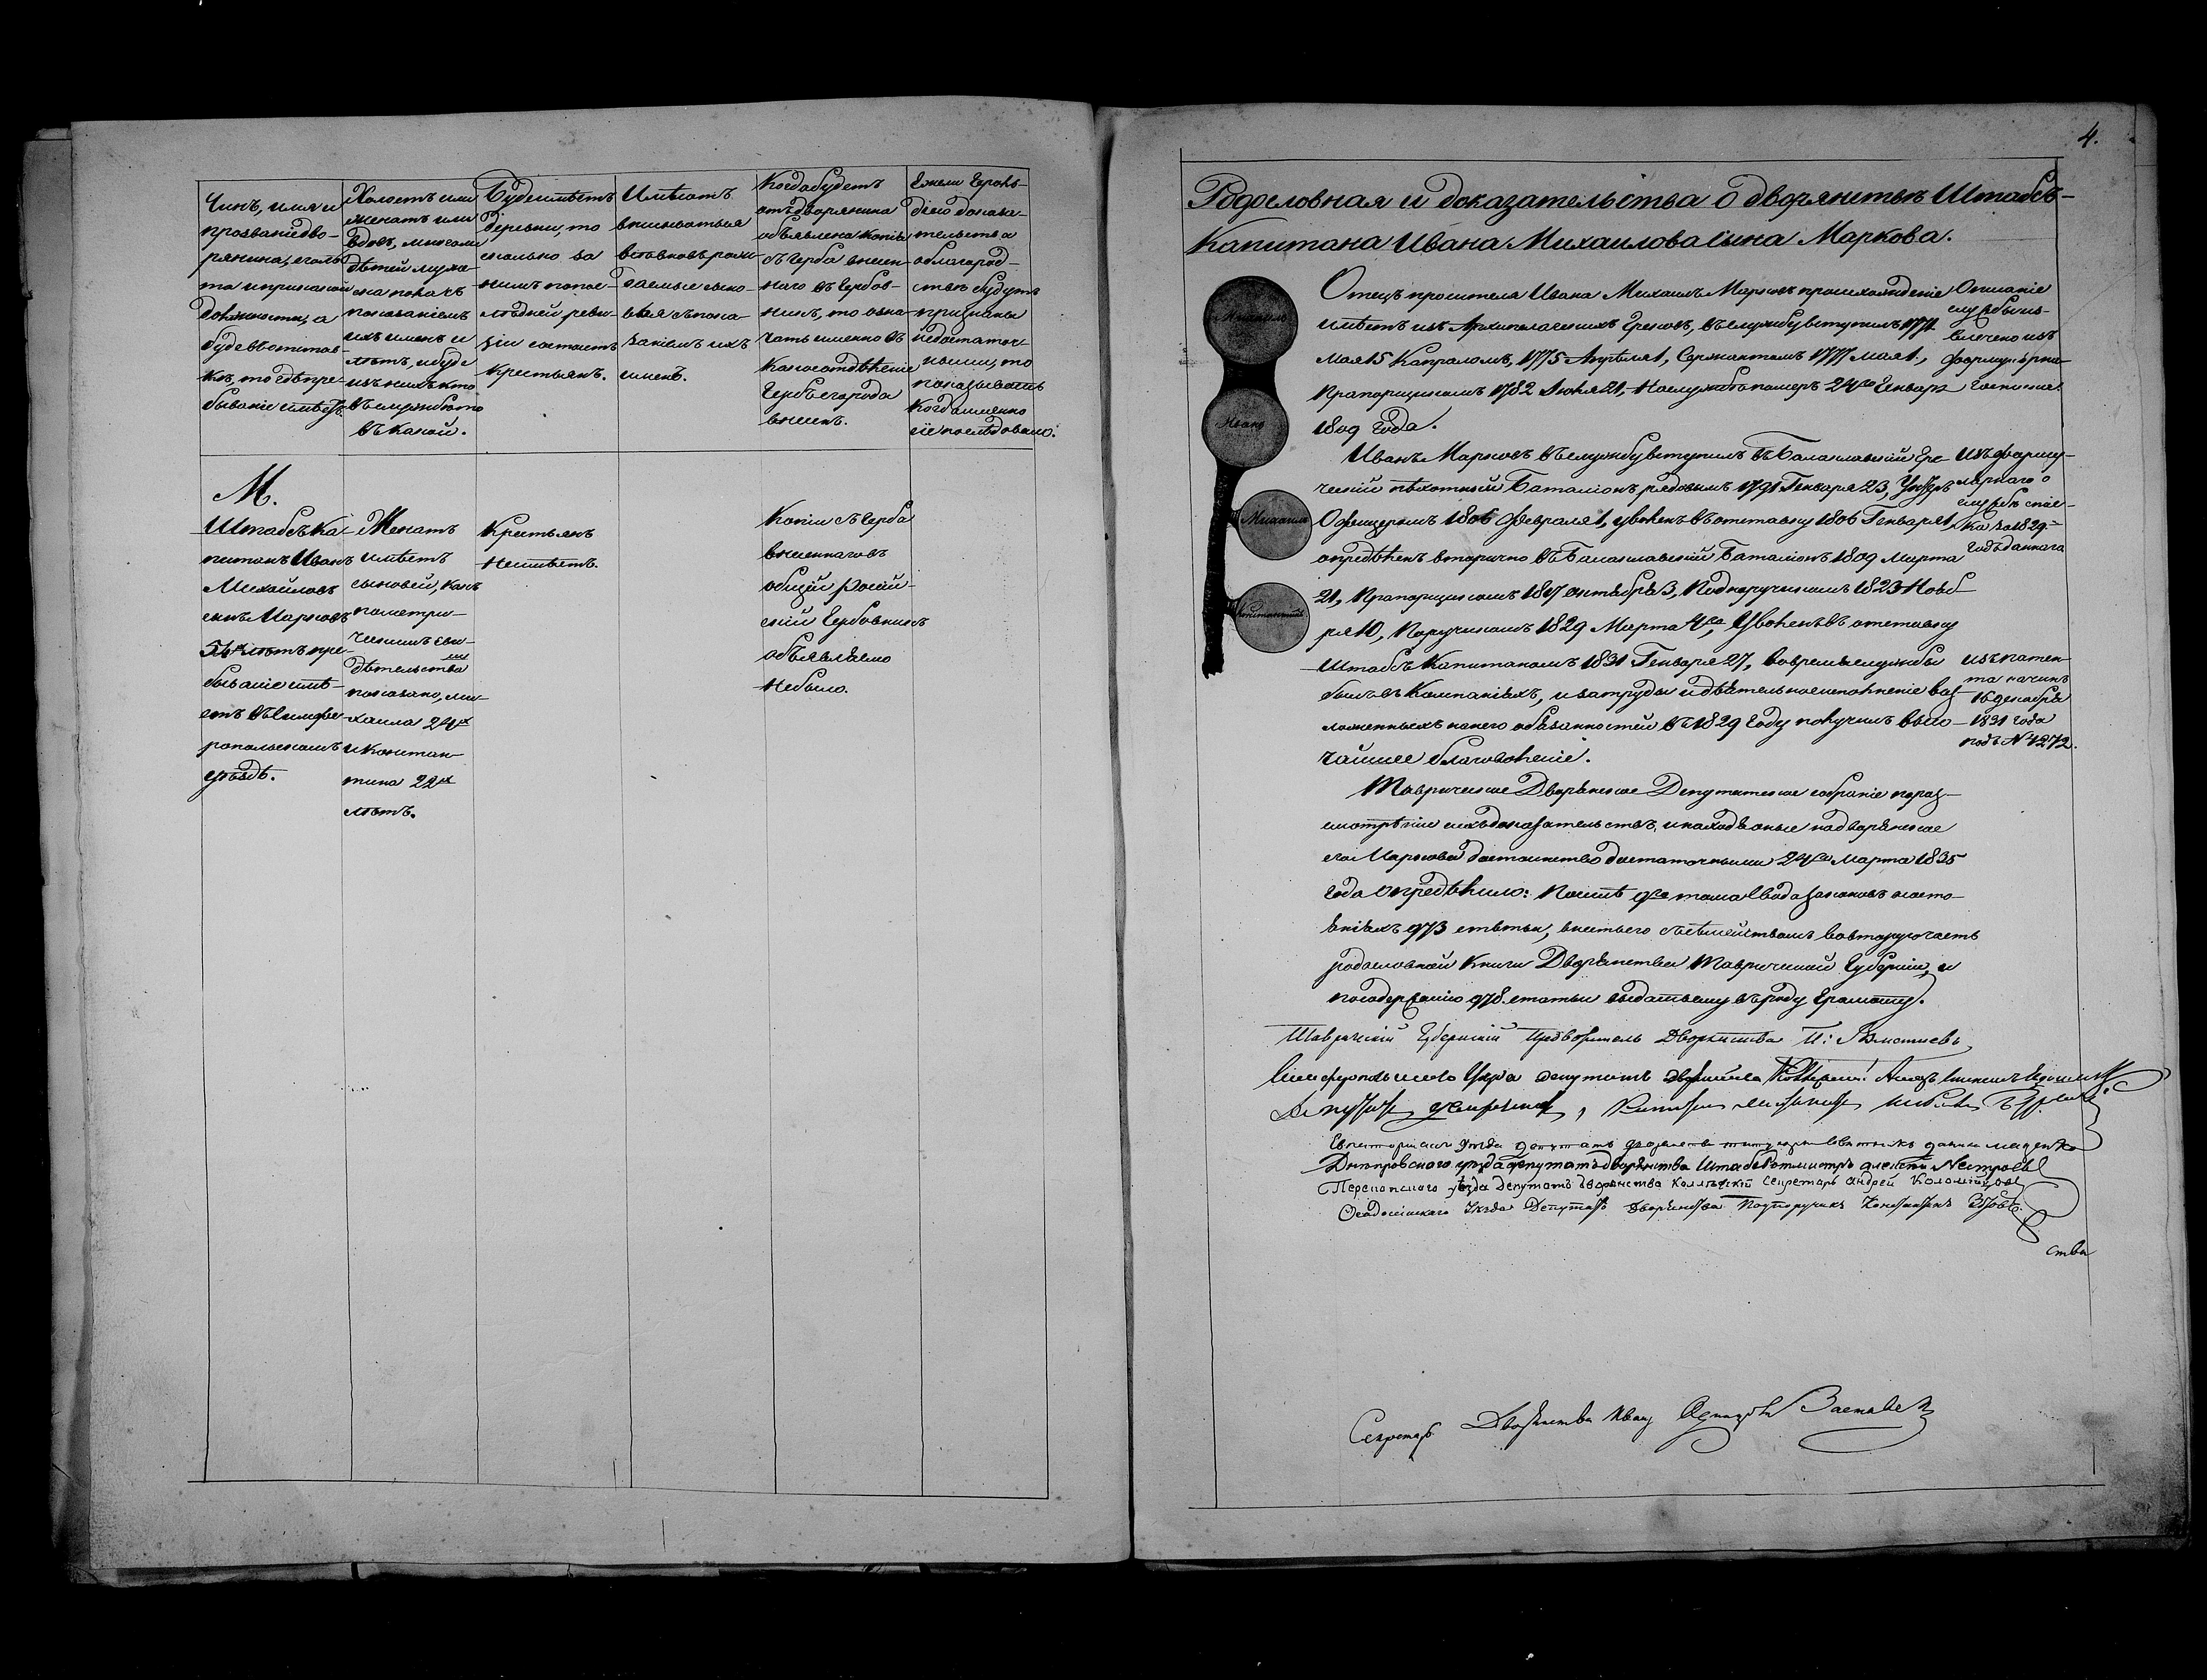 Чинъ, имя и
прозваніе дво-
рянина, его лѣ-
та и приписной
должности, а
буде въ отстав-
кѣ, то гдѣ пре-
бываніе имѣетъ.
Холостъ или
женатъ или
вдовъ, многоли
дѣтей муже-
ска пола съ
показаніемъ
ихъ именъ и
лѣтъ, и буде
изъ нихъ кто
въ службѣ то
въ какой.
Буде имѣетъ
деревни, то
сколько за
нимъ по пос-
лѣдней реви-
зіи состоитъ
крестьянъ.
Имѣютъ
вписыватъся
вставковъ роди-
ваемые
съ пока-
заніемъ ихъ
именъ.
Когда будетъ
отъ дворянина
объявлена копія
съ герба внесен-
наго въ Гербов-
никъ, то озна-
чать именно въ
какое отдѣленіе
Гербъ его рода
внесенъ.
Ежели Героль-
діею доказа-
тельства
о благород-
ствѣ будутъ
признаны
недостаточ-
ными, то
показывать
когда именно
сіе послѣдовало.
М.
Штабсъ Ка-
питанъ Иванъ
Михайловъ
сынъ Марковъ
лѣтъ пре-
бываніе имѣ-
етъ въ Симфе-
ропольскомъ
уѣздѣ.
Женатъ
имѣетъ
сыновей, какъ
по метри-
ческимъ сви-
дѣтельствамъ
показано, Ми-
хаила 24х
и Констан-
тина 22х
лѣтъ.
Крестьянъ
неимѣетъ.
Копіи съ герба
внесеннаго въ
общій Россій-
скій Гербовникъ
объявляемо
небыло.
4.
Родословная и доказательства о дворянствѣ Штабсъ-
Капитана Ивана Михаилова сына Маркова.
Михаилъ
Иванъ
Михаилъ
Константинъ
Отецъ просителя Ивана Михаилъ Марковъ происхожденіе
имѣетъ изъ Архипелагскихъ Грековъ, въ службу вступилъ 1774
мая 5 Капраломъ, 1775 Апрѣля 1, Сержантомъ 1777 мая 1,
Прапорщикомъ 1782 Іюля 21, на службѣ померъ 24го Генваря
1809 года.
Описаніе
службы из-
влечено изъ
формулярна-
го списка.
Иванъ Марковъ въ службу вступилъ въ Балаклавскій Гре-
ческій пѣхотный Баталіонъ рядовымъ 1791 Генваря 23, Унтеръ
Офицеромъ 1806 Февраля 1, уволенъ въ отставку 1806 Генваря 1,
опредѣленъ вторично въ Балаклавскій Баталіонъ 1809 Марта
21, Прапорщикомъ 1817 октября 3, Подпоручикомъ 1823 Нояб-
ря 10, Поручикомъ 1829 Марта 4го, Уволенъ въ отставку
Штабсъ Капитаномъ 1831 Генваря 27, во время службы
былъ въ Компаніяхъ, и за труды и дѣятельное исполненіе воз-
ложенныхъ на него обязанностей въ 1829 Году получилъ высо-
чайшее благоволеніе.
Изъ форму-
лярнаго о
службѣ спис-
ка за 1829й
годъ даннаго
изъ патен-
та на чинъ
16 декабря
1831 года
подъ № 4272.
Таврическое Дворянское Депутатское собраніе по раз-
смотрѣніи сихъ доказательствъ, и находя оные на дворянское
его Маркова достоинство достаточными 24го Марта 1835
года опредѣлило: По силѣ 9го тома Свода законовъ о состо-
яніяхъ 973 статьи, внесть его съ семействомъ во вторую часть
родословной книги Дворянства Таврической Губерніи, и
по содержанію 978. статьи выдать ему въ роду Грамоту.
Таврическій Губернскій Предводитель Дворянства
Симферопольскаго Уѣзда депутатъ дворянства
Евпаторійскаго уѣзда депутатъ дворянства титулярн. совѣтникъ
Днѣпровскаго уѣзда депутатъ дворянства Штабсъ Ротмистръ Алексѣй Нестроевъ
Перекопскаго уѣзда депутатъ дворянства Коллежскій Секретарь Андрей Коломійцовъ
Ѳеодосійскаго Уѣзда Депутатъ Дворянства Подпоручикъ Константинъ
ства
Секретарь Дворянства Иванъ